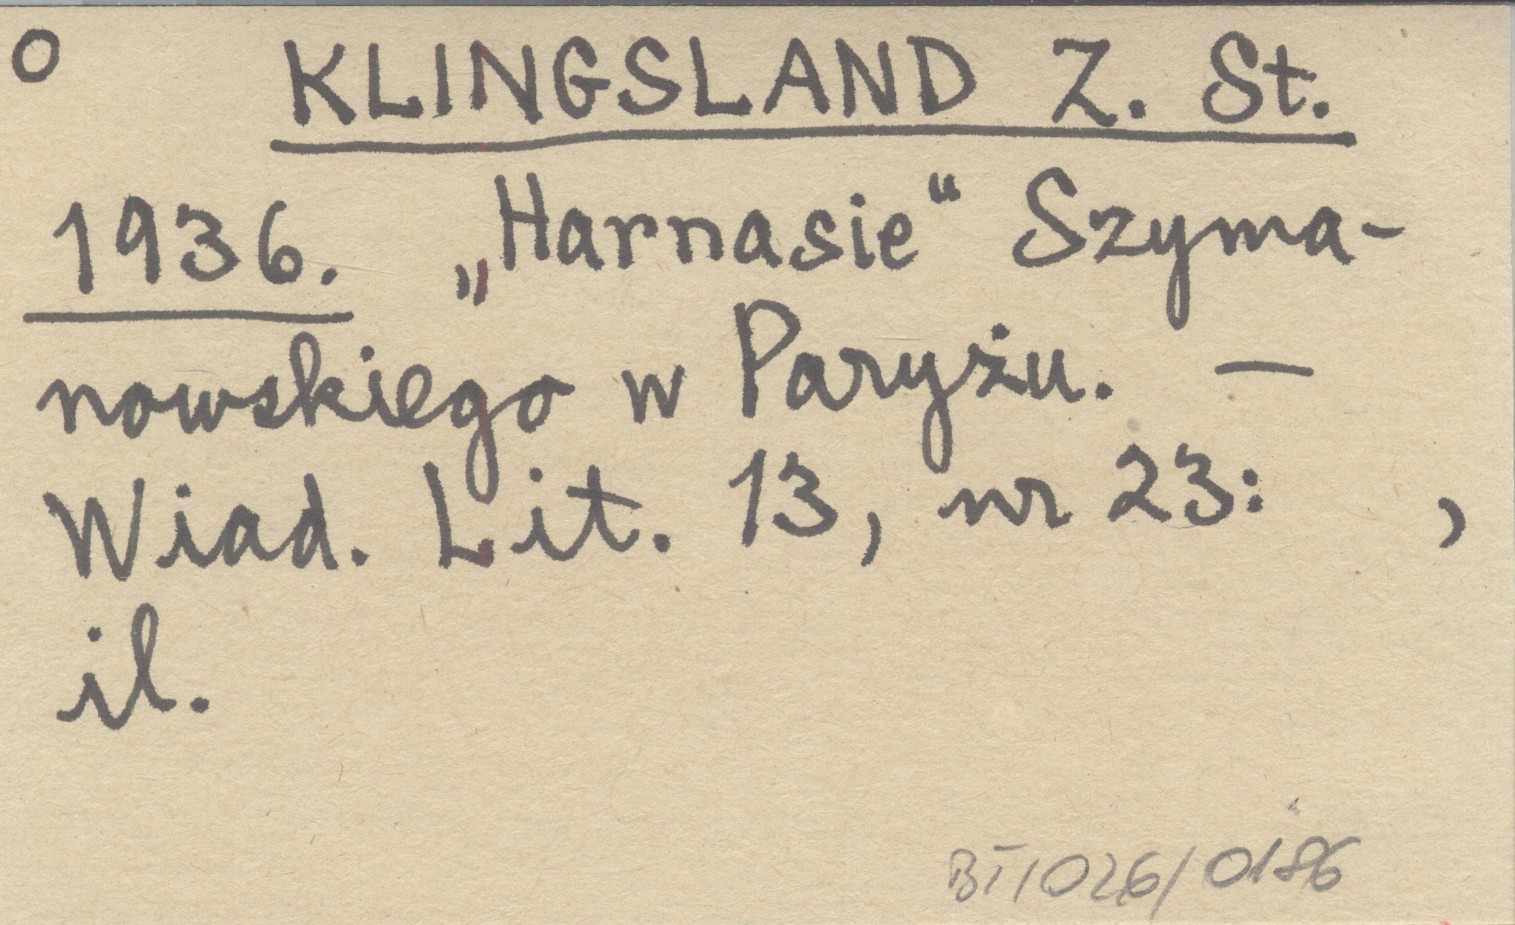 O KLINGSLAND Z. St.
1936. „Harnasie“ Szyma-
nowskiego w Paryżu. —
Wiad. Lit. 13, nr 23: ,
il.
BT/026/0186